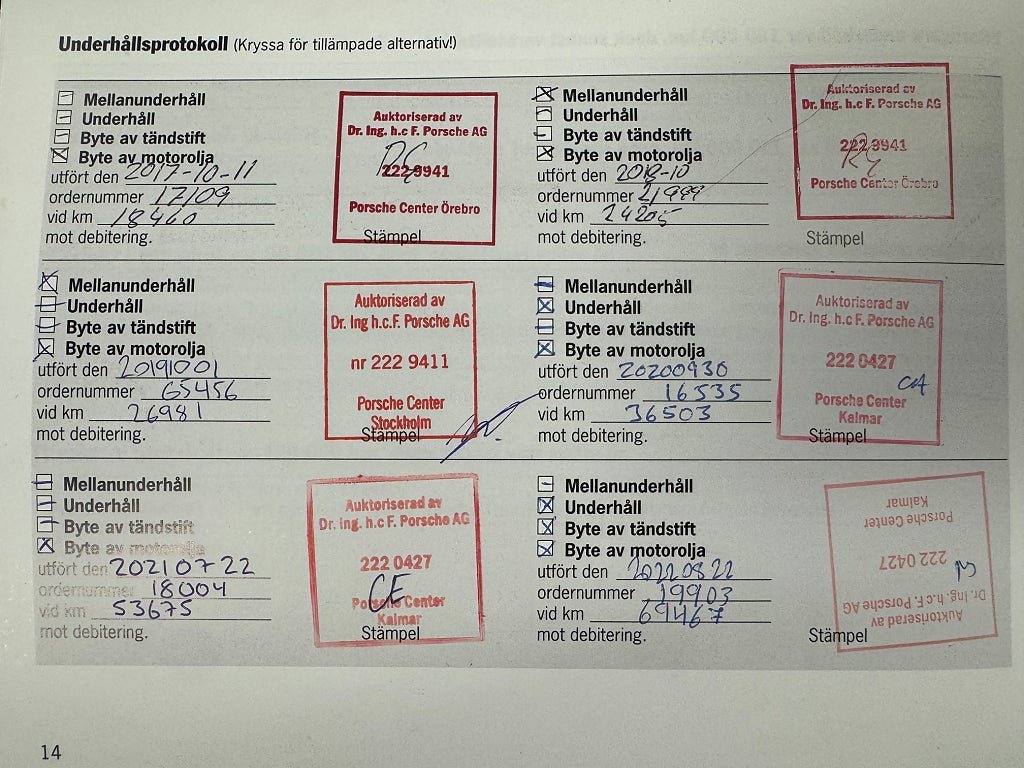 Underhållsprotokoll (Kryssa för tillämpade alternativ!)
Mellanunderhåll
Underhåll
Byte av tändstift
Byte av motorolja
utfört den 2017-10-11
ordernummer 17109
vid km 18460
mot debitering.
Auktoriserad av
Dr. Ing. h.c F. Porsche AG
222 9941
Porsche Center Örebro
Stämpel
Mellanunderhåll
Underhåll
Byte av tändstift
Byte av motorolja
utfört den
ordernummer 21999
vid km 24205
mot debitering.
Auktoriserad av
Dr. Ing. h.c F. Porsche AG
222 9941
Porsche Center Örebro
Stämpel
Mellanunderhåll
Underhåll
Byte av tändstift
Byte av motorolja
utfört den 20191001
ordernummer 65456
vid km 26981
mot debitering.
Auktoriserad av
Dr. Ing h.c.F. Porsche AG
nr 222 9411
Porsche Center
Stockholm
Stämpel
Mellanunderhåll
Underhåll
Byte av tändstift
Byte av motorolja
utfört den 20200930
ordernummer 16535
vid km 36503
mot debitering.
Auktoriserad av
Dr. Ing. h.c. F. Porsche AG
222 0427
CA
Porsche Center
Kalmar
Stämpel
Mellanunderhåll
Underhåll
Byte av tändstift
Byte av motorolja
utfört den 20210722
ordernummer 18004
vid km 53675
mot debitering.
Auktoriserad av
Dr. Ing. h.c. F. Porsche AG
222 0427
CE
Porsche Center
Kalmar
Stämpel
Mellanunderhåll
Underhåll
Byte av tändstift
Byte av motorolja
utfört den 20220822
ordernummer 19903
vid km 69467
mot debitering.
Auktoriserad av
Dr. Ing. h.c. F. Porsche AG
222 0427
Porsche Center
Kalmar
Stämpel
14